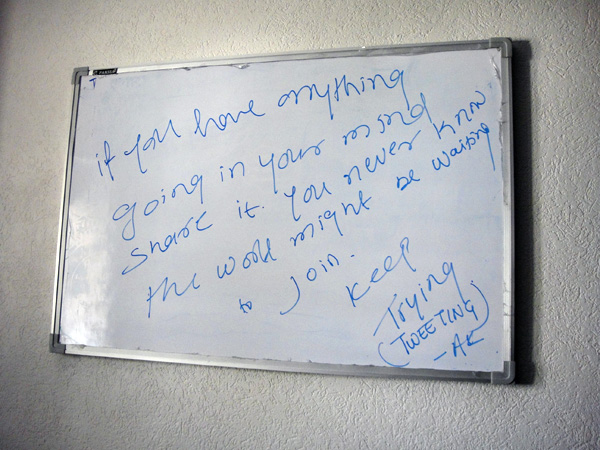 if you have anything
going in your mind
share it. You never know
the world might be waiting
to join.
Keep
Trying
(TWEETING)
-AK